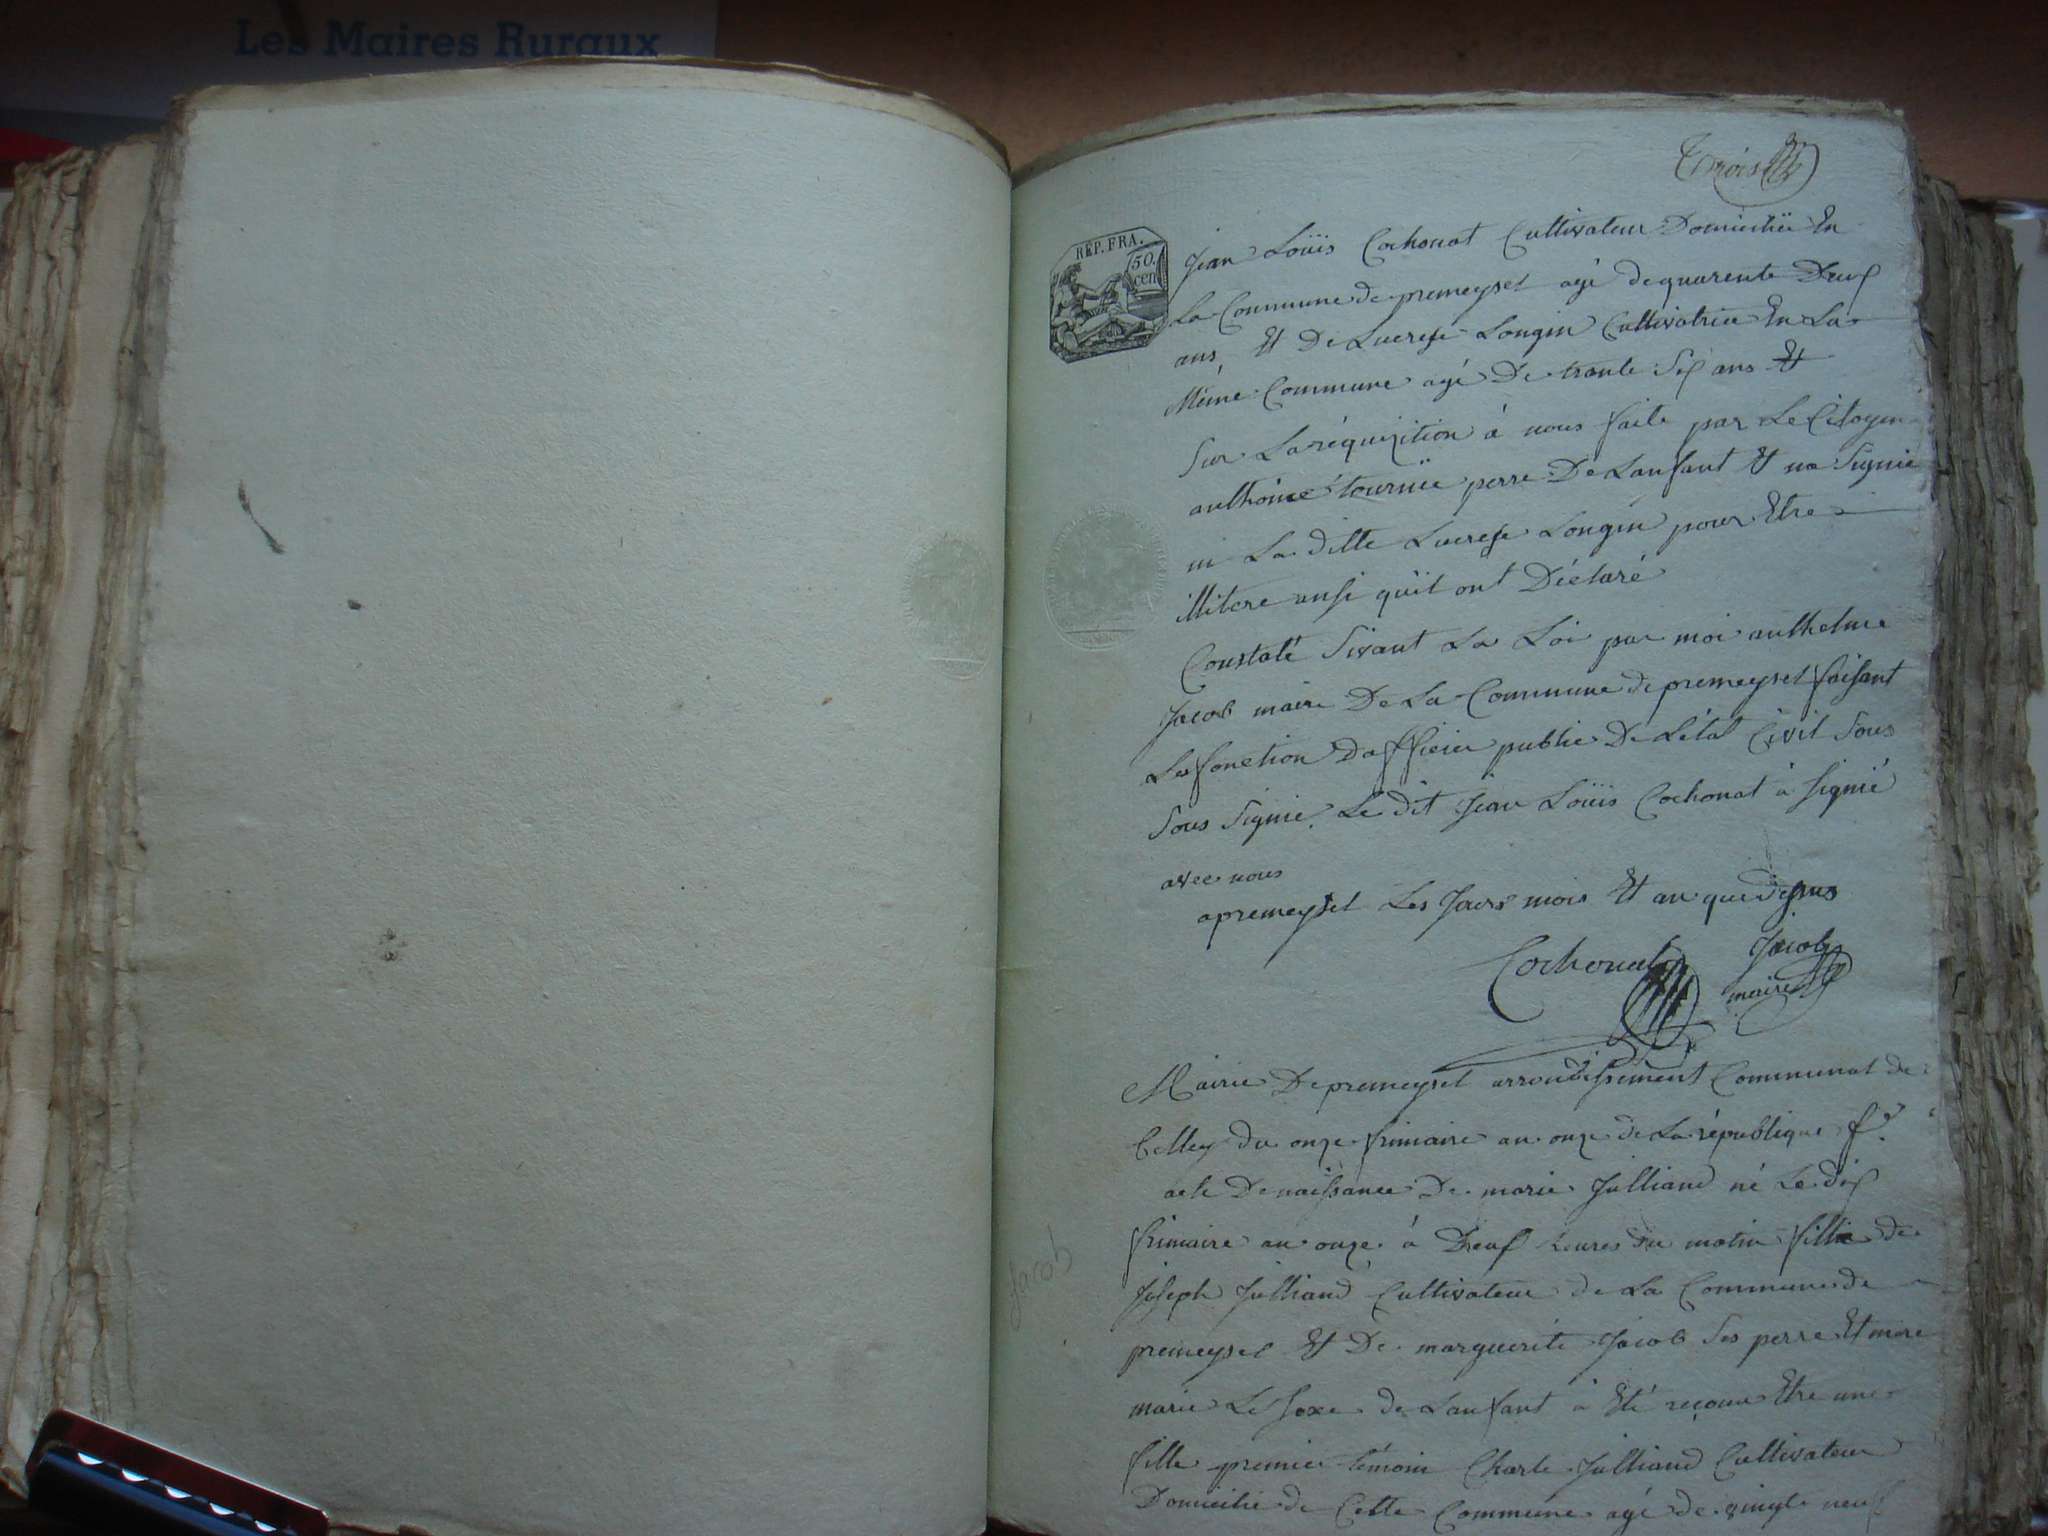 Les Maires Ruraux
Trois
REP. FRA.
50.
cen
Jean Loüis Cochonat Cultivateur Domicilié En
La Commune de premeysel agé de quarente Deux
ans Et De Lucresse Longin Cultivatrice En La
Même Commune agé De trante Six ans Et
Sur La réquizition à nous faite par Le Citoyen
anthoine tournïé perre De Lanfant Et na Signié
ni La ditte Lucresse Longin pour Etre
illitere ansi quil ont Déclaré
Constaté Sivant La Loi par moi anthelme
Jacob maire De La Commune de premeysel faisant
Les fonction Dofficier public De Létat Civil Sous
Sous Signié. Le dit Jean Loüis Cochonat à Signié
avec nous
a premeysel Les Jours mois Et an que dessus
Cochonat Jacob
maire
Mairie De premeysel arrondissement Communal de
Belley du onze frimaire an onze de La république f.
acte De naissance De marie Julliand né Le dix
frimaire an onze à Deux heures du matin fille de
Joseph Julliand Cultivateur de La Commune de
premeysel Et De marguerite Jacob Ses perre Et mere
Jacob
marie Le Sexe de Lanfant à Eté reçonu Etre une
fille premier témoin Charle Julliand Cultivateur
Domicilié de Cette Commune agé de vingt neuf